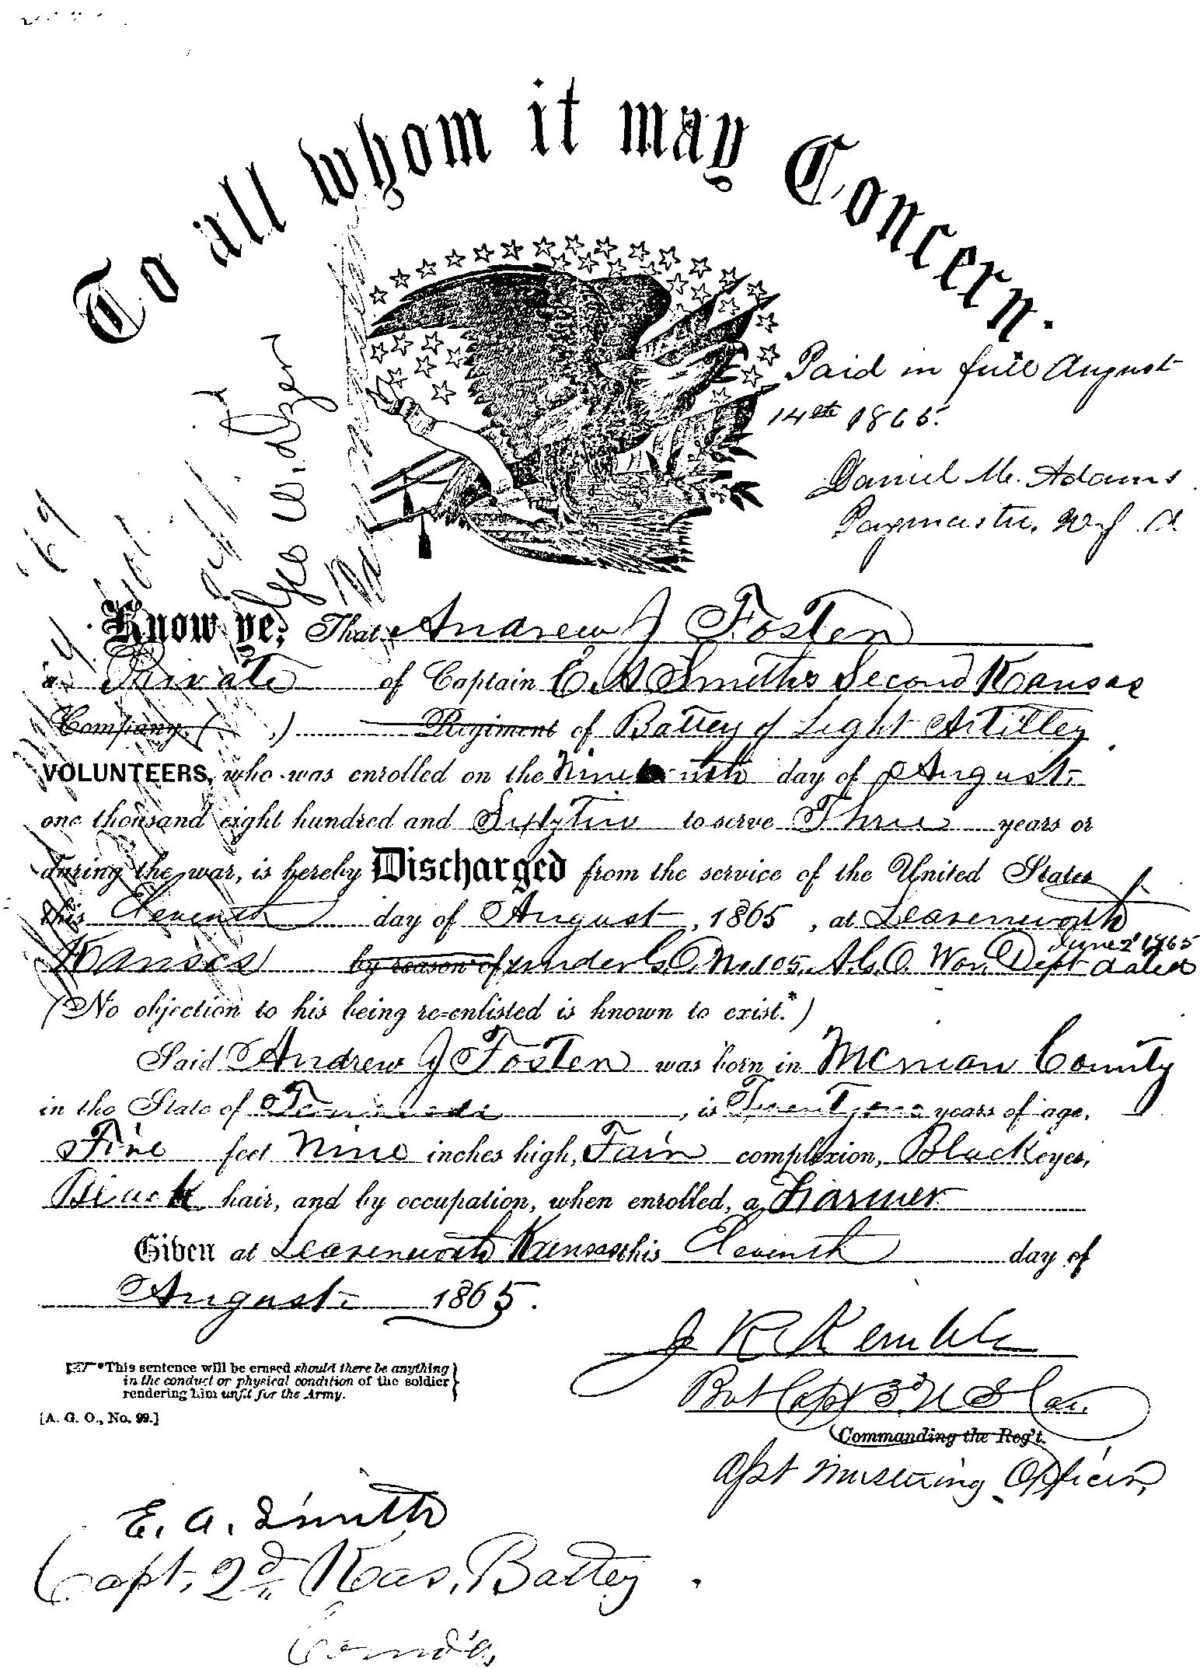 To all whom it may Concern.
Paid in full August
14th 1865.
Daniel M. Adams
Paymaster, U.S. A
Geo W. Dzen
Know ye, That Andrew J Fosten
a Private of Captain E A Smiths Second Kansas
Company, ( ,) Regiment of Battey of Light Artilley
VOLUNTEERS, who was enrolled on the Nineteenth day of August
one thousand eight hundred and Sixtytwo to serve Three years or
during the war, is hereby Discharged from the service of the United States
this Eleventh day of August, 1865, at Leavenworth
Kansas by reason of under G.O. No 105, A.G.O. War Dept dated June 2d 1865
(No objection to his being re-enlisted is known to exist.*)
Said Andrew J Fosten was born in McMinn County
in the State of Tennessee, is Twenty one years of age,
Five feet Nine inches high, Fair complexion, Black eyes,
Black hair, and by occupation, when enrolled, a Farmer
Given at Leavenworth Kansas this Eleventh day of
August 1865.
J R Kemble
Bvt Capt 3d U S Cav.
Commanding the Reg't.
Asst Mustering Officer,
*This sentence will be erased should there be anything
in the conduct or physical condition of the soldier
rendering him unfit for the Army.
[A. G. O., No. 99.]
E. A. Smith
Capt, 2d Kas, Battey
Comd'g